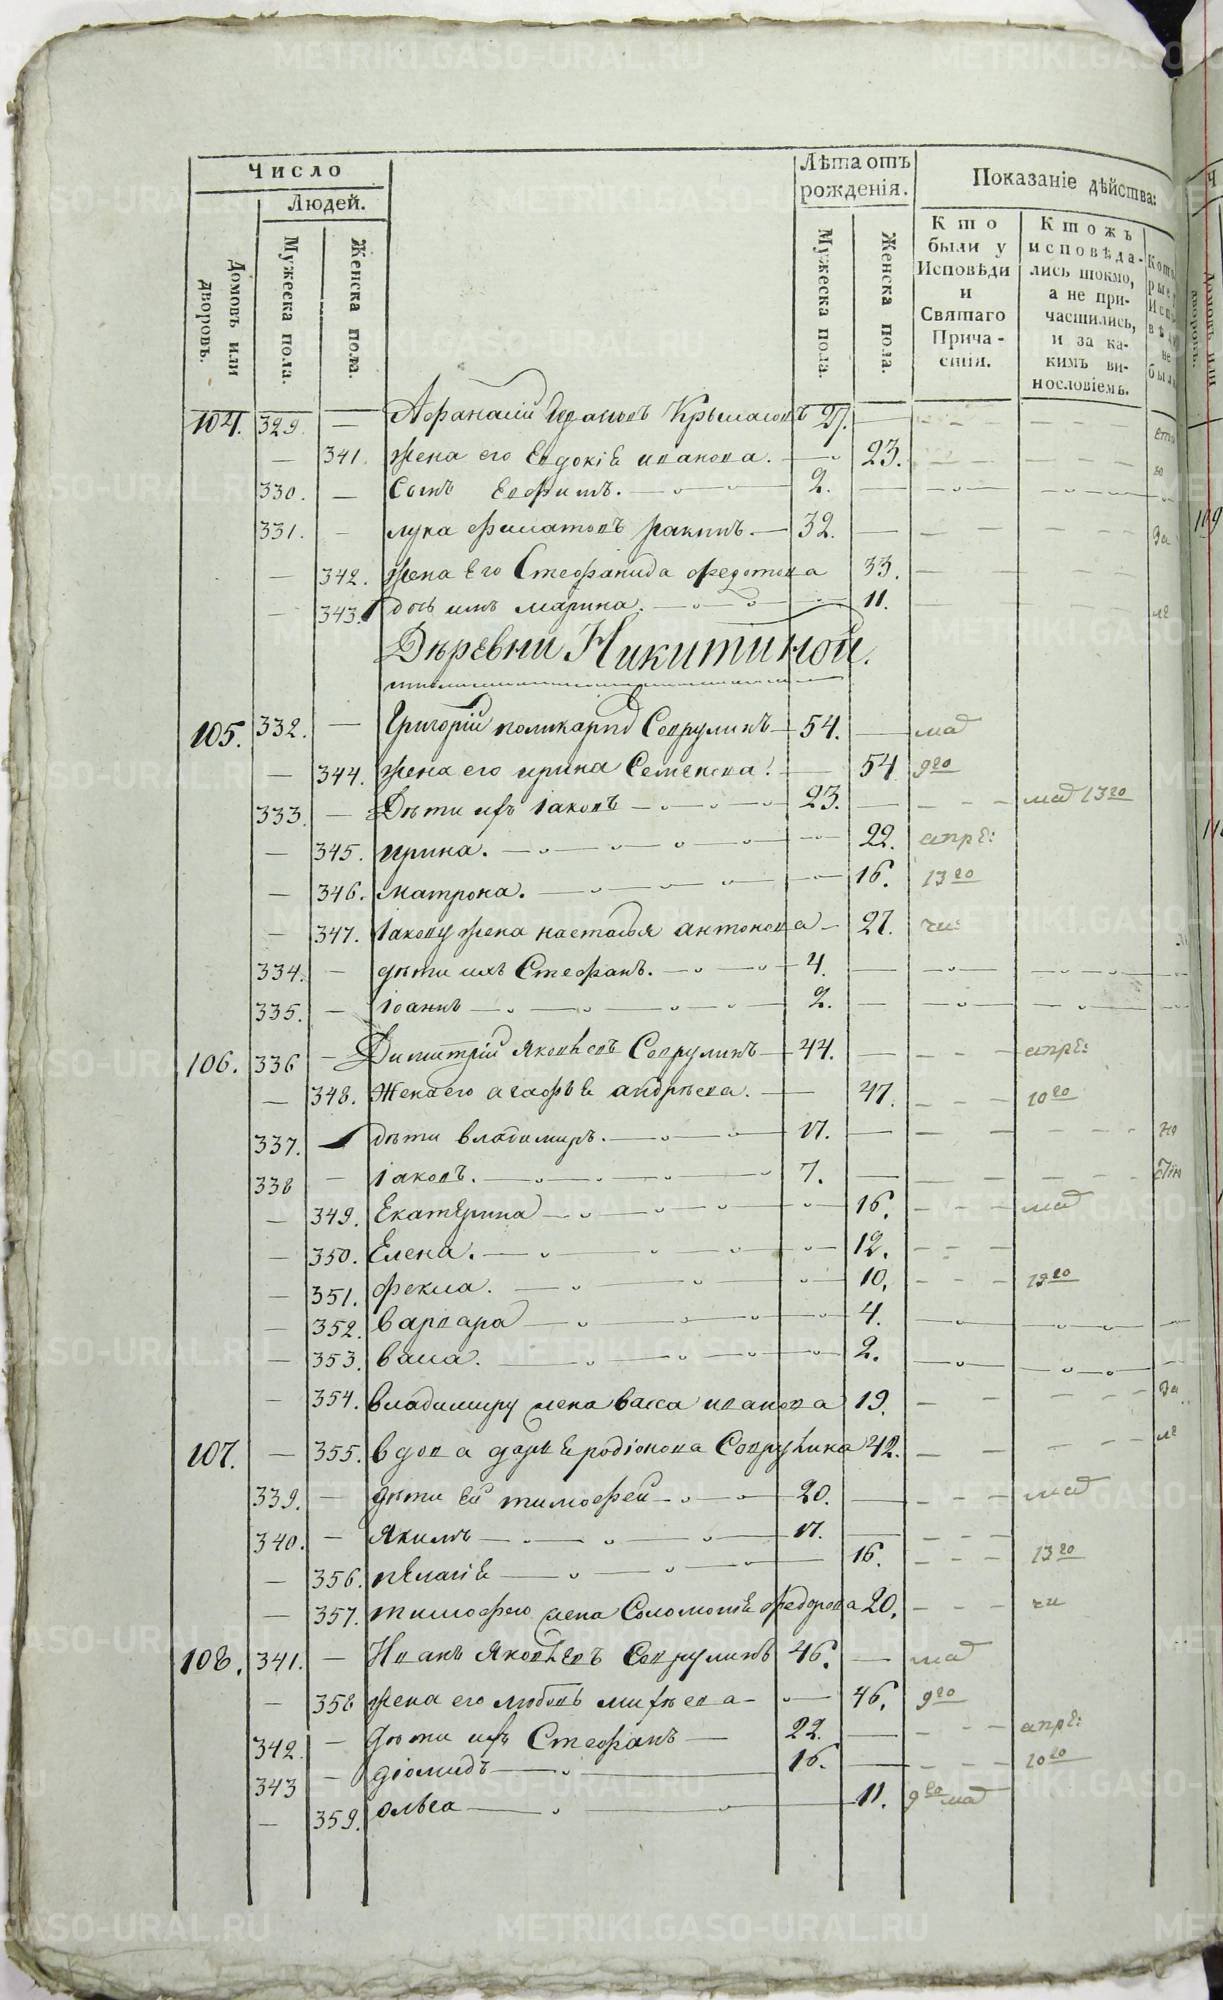 Число
Людей.
Домовъ или дворовъ.
Мужеска пола.
Женска пола.
Лѣта отъ рожденія.
Мужеска пола.
Женска пола.
Показаніе дѣйства:
Кто были у Исповѣди и Святаго Прича-стія.
Ктожъ исповѣда-лись токмо, а не при-частились, и за ка-кимъ ви-нословіемъ.
104. 329. — 27. —
— 341. жена его Евдокіѣ иванова. — 23.
330. — Сынъ Евфимъ. — 2. —
331. — лука филатовъ ракинъ. — 32. —
— 342. жена Его Стефанида федотова 33.
— 343. дочь имъ марина. — 11.
Дѣревни Никитиной.
105. 332. — Григорій поликарпо Совулинъ — 54. — маі
— 344. жена его ирина Семенова. — 54 9го
333. — Дѣти ихъ Іаковъ — 23. — маі 13го
— 345. ирина. — 22. апрѣ:
— 346. матрона. — 16. 13го
— 347. Іакову жена настасья антонова — 27. чис
334. — дѣти ихъ Стефанъ. — 4. —
335. — Іоаннъ — 2. —
106. 336 — Димитрій Яковлевъ Соврулинъ — 44. — апрѣ:
— 348. Жена его агафьѣ андрѣева. — 47. 10го
337. — дѣти владимиръ. — 17. —
338 — Іаковъ. — 7. —
— 349. Екатерина — 16. маі
— 350. Елена. — 12.
— 351. фекла. — 10. 13го
— 352. варвара — 4.
— 353. васа. — 2.
— 354. владимиру жена васса иванова 19.
107. — 355. вдова дарьѣ родіонова Соврулина 42.
339. — дѣти Ей тимофей — 20. — маі
340. — Якимъ — 17. —
— 356. пелагіѣ — 16. 13го
— 357. тимофею жена Соломоніѣ федорова 20. чи
108. 341. — Иванъ Яковлевъ Соврулинъ 46. — маі
— 358 жена его любовь михѣева — 46. 9го
342. — Дѣти ихъ Стефанъ — 22. — апрѣ:
343 — діомидъ — 16. — 10го
— 359. ольга — 11. 9го маі
METRIKI.GASO-URAL.RU